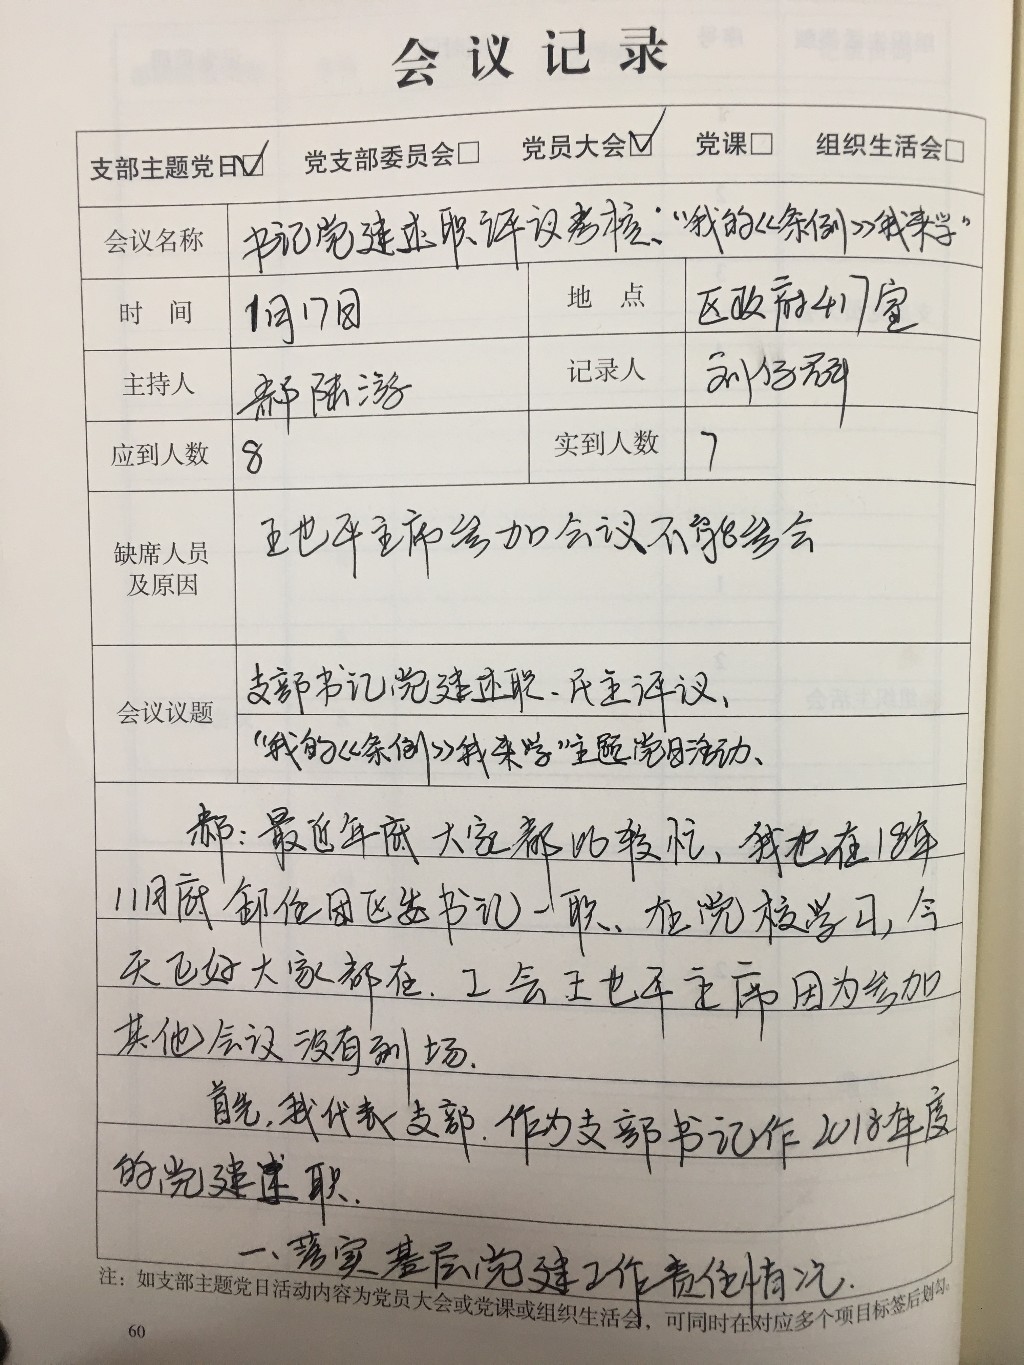 会议记录
支部主题党日☑ 党支部委员会□ 党员大会☑ 党课□ 组织生活会□
会议名称 书记党建述职评议考核:“我的《条例》我来学”
时 间 1月17日 地 点 区政府417室
主持人 郝陆游 记录人 刘
应到人数 8 实到人数 7
缺席人员
及原因
王也平主席参加会议不能参会
会议议题
支部书记党建述职、民主评议、
“我的《条例》我来学”主题党日活动、
郝:最近年底大家都比较忙、我也在18年
11月底卸任团区委书记一职、在党校学习,今
天正好大家都在.工会王也平主席因为参加
其他会议没有到场.
首先,我代表支部.作为支部书记作2018年度
的党建述职.
一、落实基层党建工作责任情况.
注:如支部主题党日活动内容为党员大会或党课或组织生活会,可同时在对应多个项目标签后划勾。
60